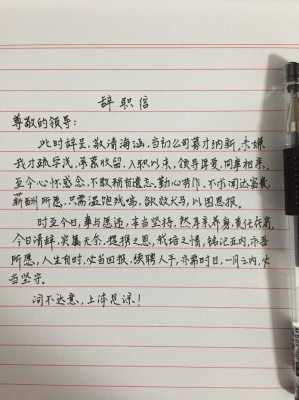 辞职信
尊敬的领导:
此时辞呈,敬请海涵,当初公司募才纳新,未嫌
我才疏学浅,承蒙收留,入职以来,领导厚爱,同事相亲,
至今心怀感念,不敢稍有遗忘,勤心劳作,不求闻达富贵,
薪酬所愿,只需温饱残喘,欲效犬马,以图恩报。
时至今日,事与愿违,本当坚持,然身亲养身,责任在肩,
今日请辞,实属无奈,提携之恩,栽培之情,铭记五内,亦吾
所愿,人生有时,必当回报,续聘人手,亦需时日,一月之内,必
当坚守。
词不达意,上涕见谅!